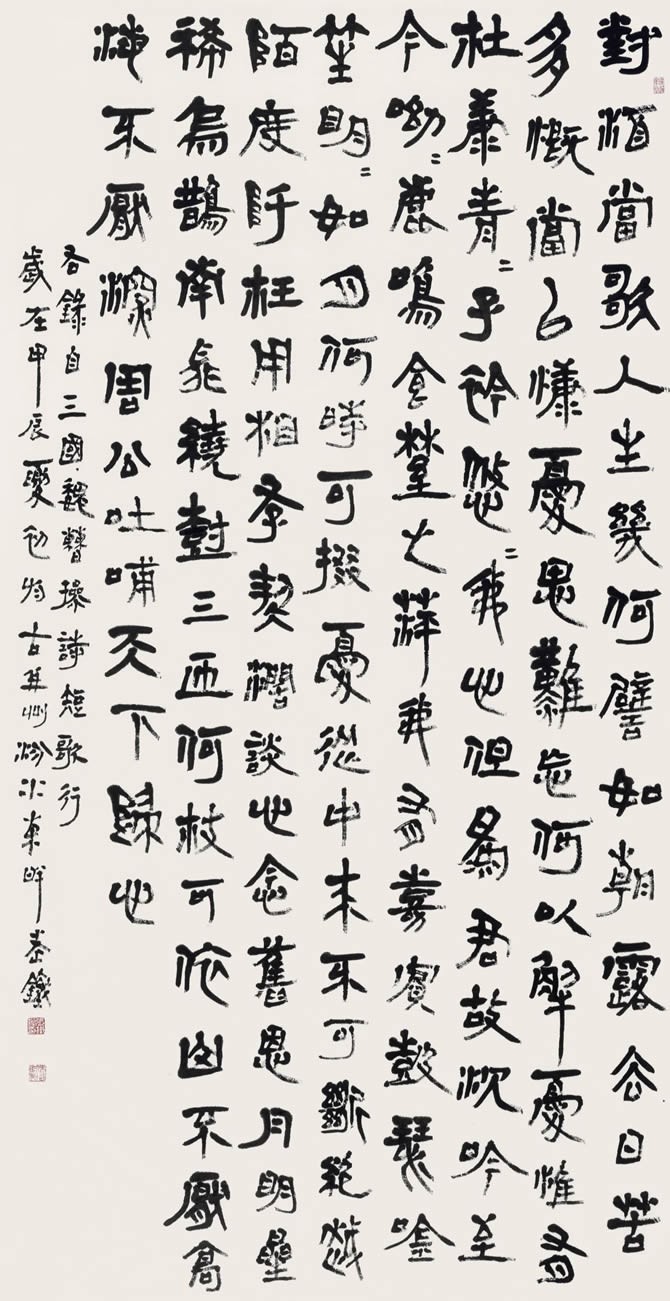 對酒當歌人生幾何譬如朝露去日苦
多慨當以慷憂思難忘何以解憂惟有
杜康青=子衿悠=我心但為君故沉吟至
今呦=鹿鳴食埜之苹我有嘉賓鼓瑟吹
笙明=如月何時可掇憂從中來不可斷絕越
陌度阡枉用相存契闊談心念舊恩月明星
稀烏鵲南飛繞樹三匝何枝可依山不厭高
海不厭深周公吐哺天下歸心
右錄自三國·魏曹操詩短歌行
歲在甲辰夏初於古并州汾水東畔泰鐵